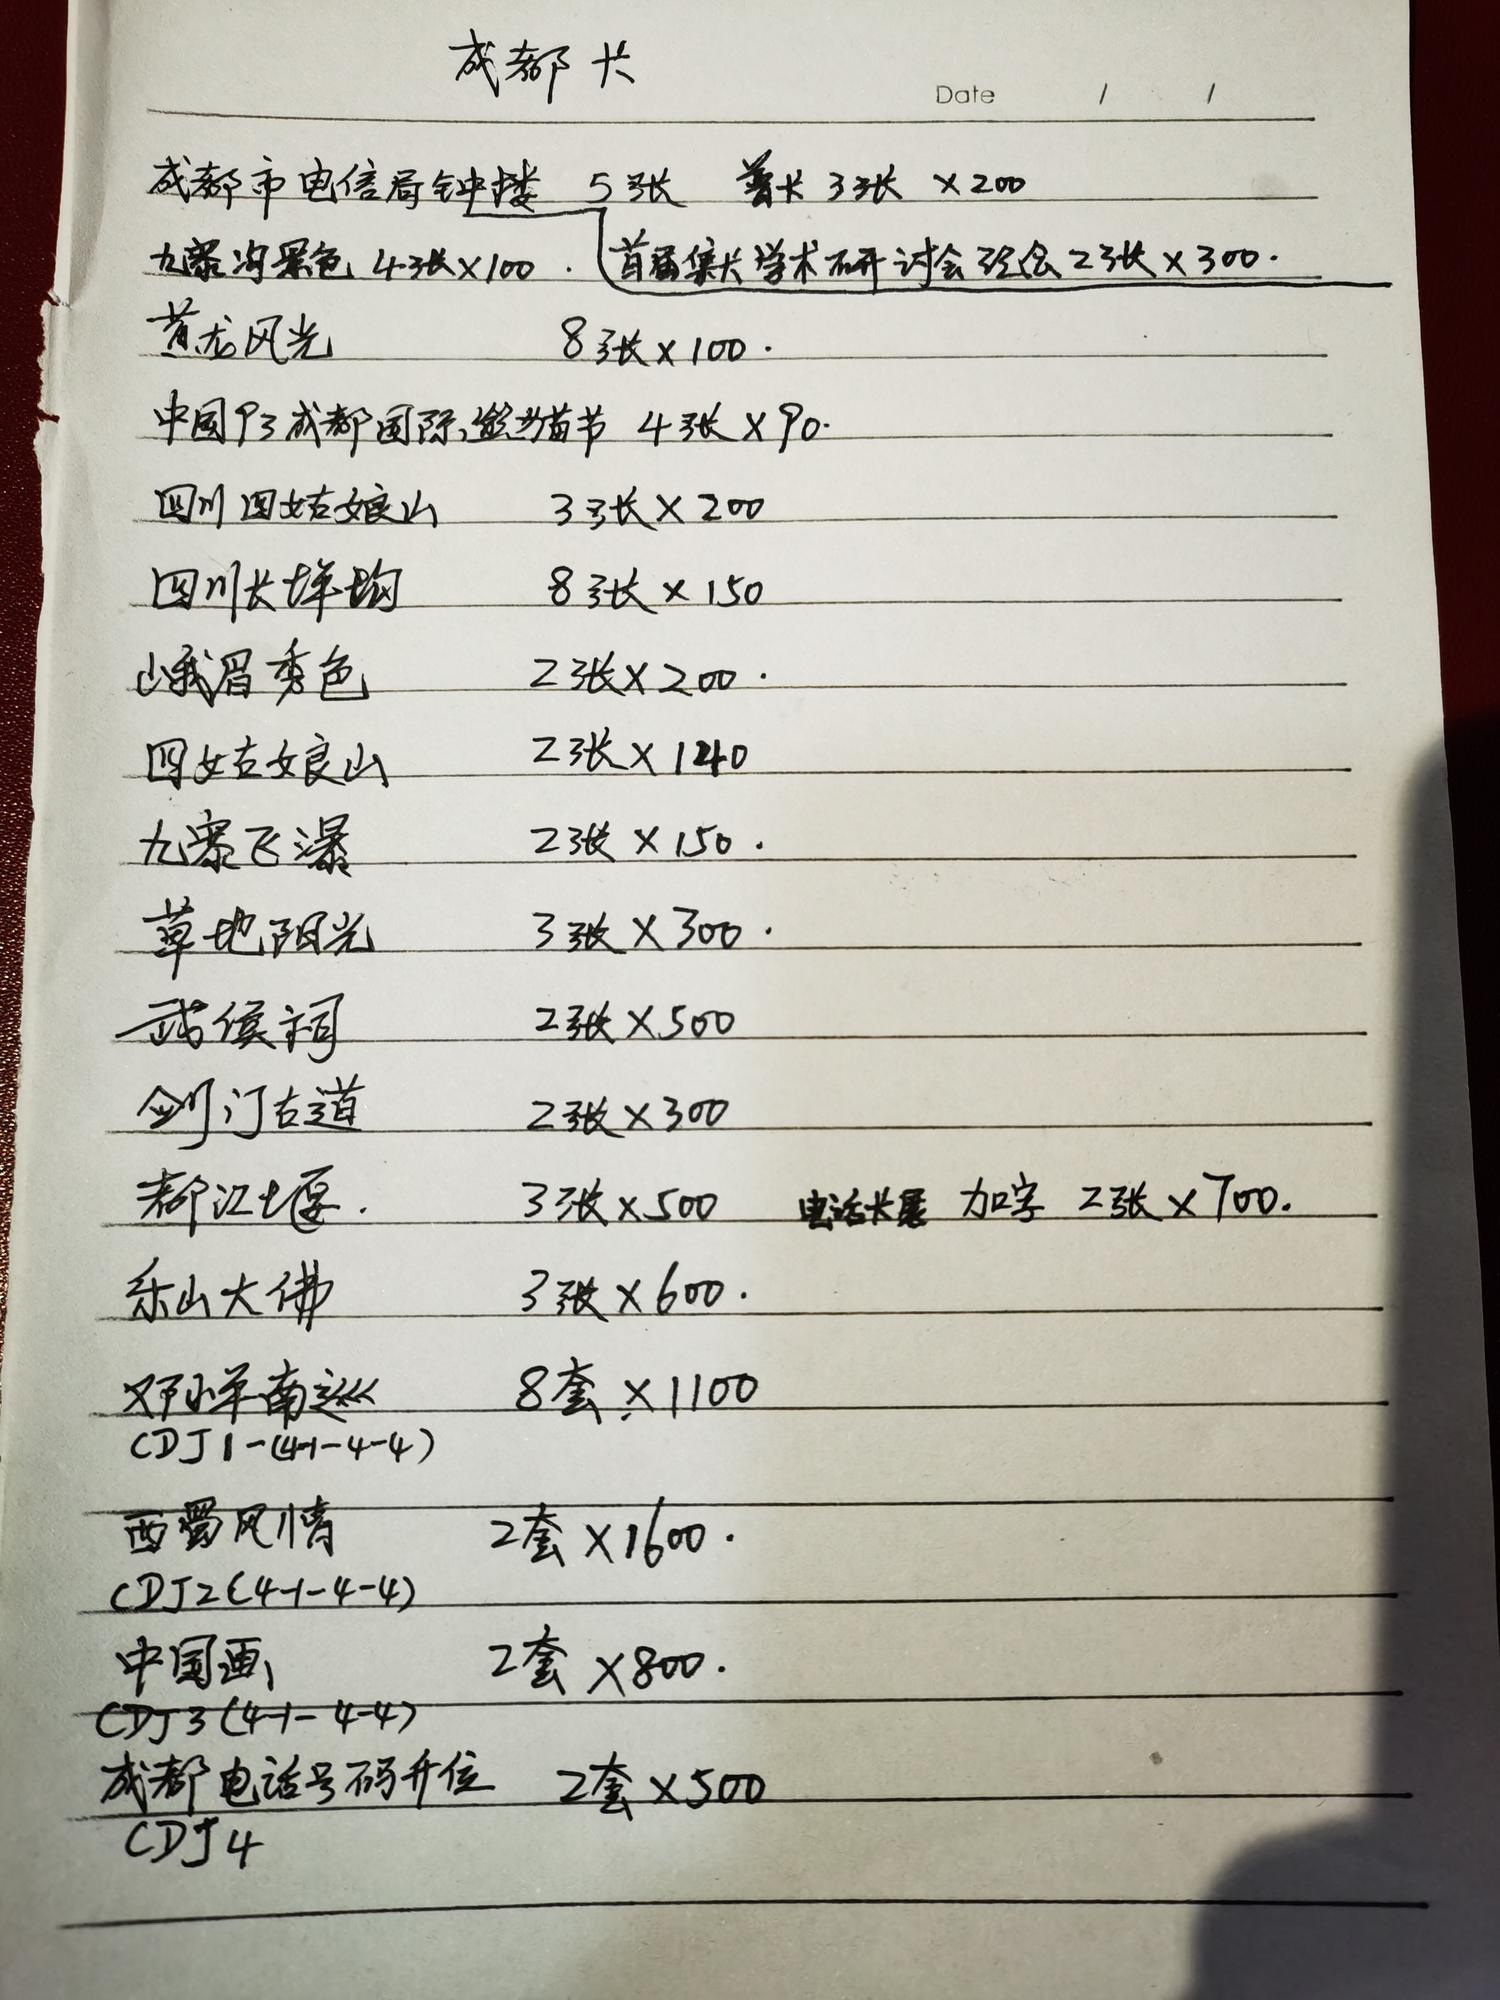 成都卡
Date / /
成都市电信局钟楼 5张 普卡 3张 ×200
九寨沟景色 4张×100. 首届集卡学术研讨会 2张×300.
黄龙风光 8张×100.
中国93成都国际熊猫节 4张×90.
四川四姑娘山 3张×200
四川长坪沟 8张×150
峨眉秀色 2张×200.
四姑娘山 2张×140
九寨飞瀑 2张×150.
草地阳光 3张×300.
武侯祠 2张×500
剑门古道 2张×300
都江堰. 3张×500 电话卡展 加字 2张×700.
乐山大佛 3张×600.
邓小平南巡 8套×1100
CDJ1-(4-1-4-4)
西蜀风情 2套×1600.
CDJ2(4-1-4-4)
中国画 2套×800.
CDJ3(4-1-4-4)
成都电话号码升位 2套×500
CDJ4